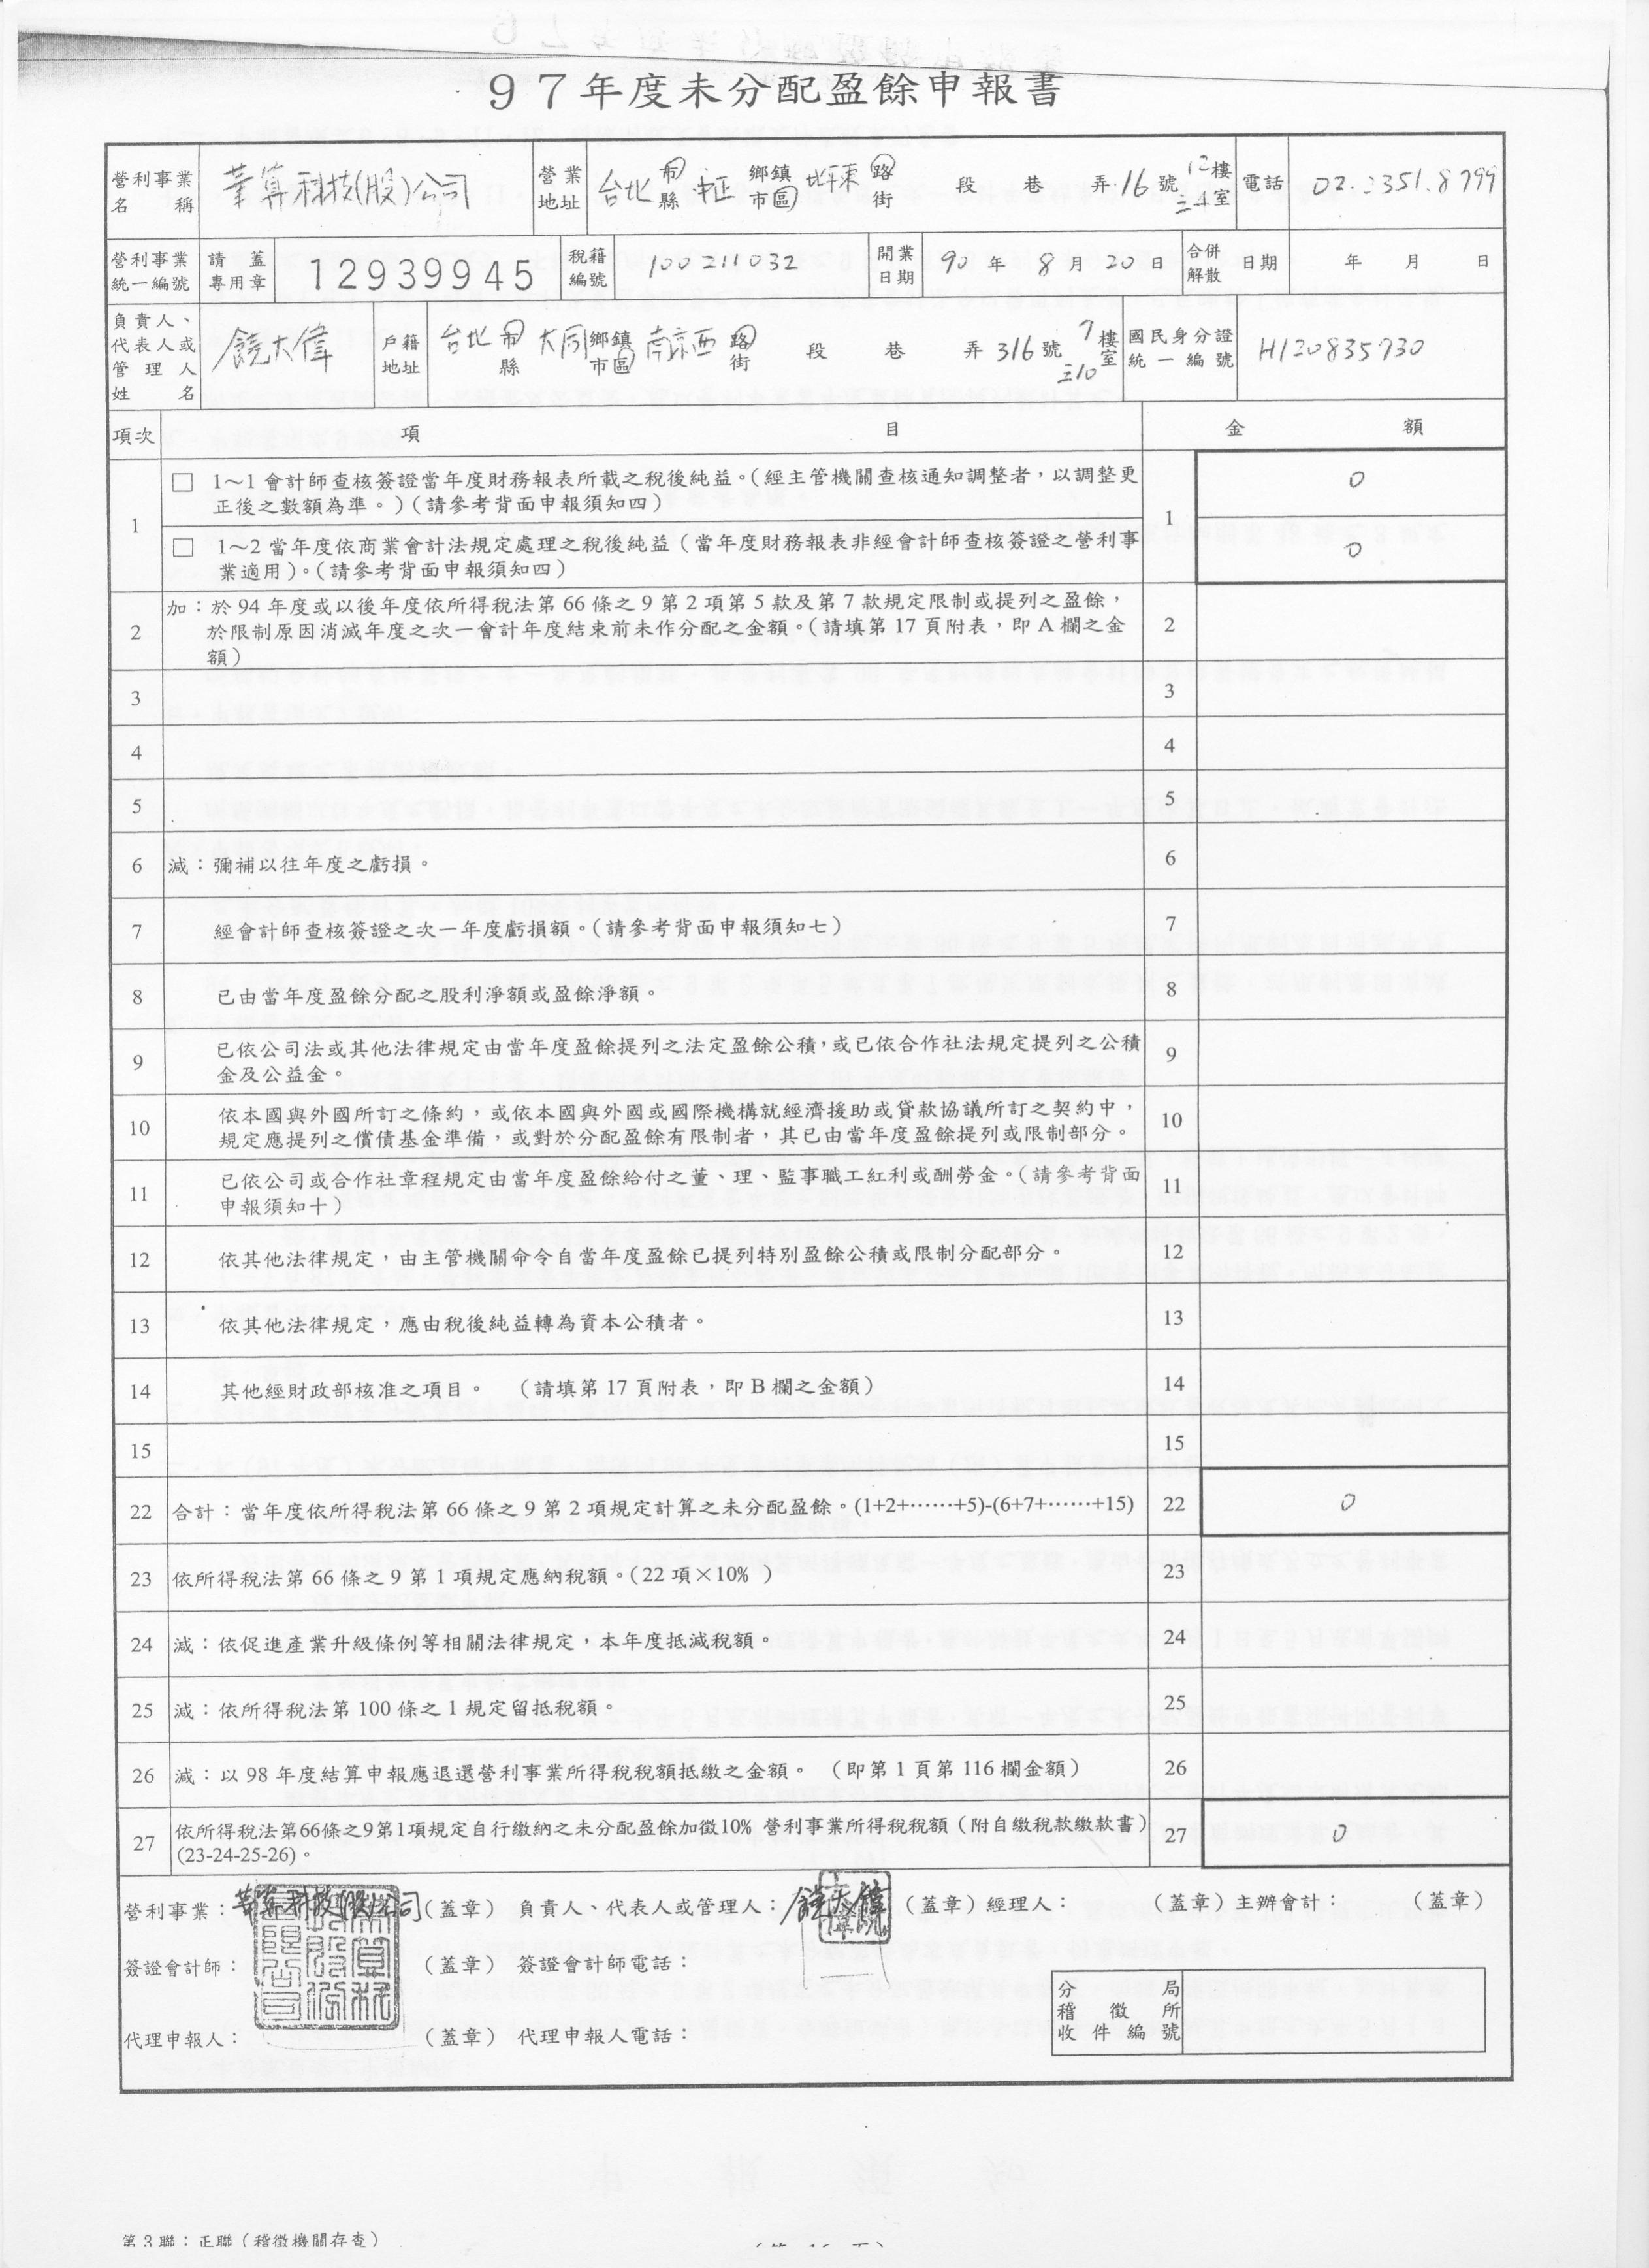 97年度未分配盈餘申報書
營利事業名稱 華算科技(股)公司 營業地址 台北市縣 中正 鄉鎮市區 北平東 路街 段 巷 弄 16 號 12 樓 室 電話 02-2351-8799
營利事業統一編號 請蓋專用章 12939945 稅籍編號 100211032 開業日期 90 年 8 月 20 日 合併解散 日期 年 月 日
負責人、代表人或管理人姓名 饒大偉 戶籍地址 台北 市縣 大同 鄉鎮市區 南京西 路街 段 巷 弄 316 號 7 樓 室 之10 國民身分證統一編號 H120835730
項次 項 目 金 額
1 □ 1～1 會計師查核簽證當年度財務報表所載之稅後純益。(經主管機關查核通知調整者，以調整更
正後之數額為準。)(請參考背面申報須知四) 1 0
□ 1～2 當年度依商業會計法規定處理之稅後純益(當年度財務報表非經會計師查核簽證之營利事
業適用)。(請參考背面申報須知四) 0
2 加：於 94 年度或以後年度依所得稅法第 66 條之 9 第 2 項第 5 款及第 7 款規定限制或提列之盈餘，
於限制原因消滅年度之次一會計年度結束前未作分配之金額。(請填第 17 頁附表，即 A 欄之金
額) 2
3 3
4 4
5 5
6 減：彌補以往年度之虧損。 6
7 經會計師查核簽證之次一年度虧損額。(請參考背面申報須知七) 7
8 已由當年度盈餘分配之股利淨額或盈餘淨額。 8
9 已依公司法或其他法律規定由當年度盈餘提列之法定盈餘公積，或已依合作社法規定提列之公積
金及公益金。 9
10 依本國與外國所訂之條約，或依本國與外國或國際機構就經濟援助或貸款協議所訂之契約中，
規定應提列之償債基金準備，或對於分配盈餘有限制者，其已由當年度盈餘提列或限制部分。 10
11 已依公司或合作社章程規定由當年度盈餘給付之董、理、監事職工紅利或酬勞金。(請參考背面
申報須知十) 11
12 依其他法律規定，由主管機關命令自當年度盈餘已提列特別盈餘公積或限制分配部分。 12
13 依其他法律規定，應由稅後純益轉為資本公積者。 13
14 其他經財政部核准之項目。 (請填第 17 頁附表，即 B 欄之金額) 14
15 15
22 合計：當年度依所得稅法第 66 條之 9 第 2 項規定計算之未分配盈餘。(1+2+……+5)-(6+7+……+15) 22 0
23 依所得稅法第 66 條之 9 第 1 項規定應納稅額。(22 項×10% ) 23
24 減：依促進產業升級條例等相關法律規定，本年度抵減稅額。 24
25 減：依所得稅法第 100 條之 1 規定留抵稅額。 25
26 減：以 98 年度結算申報應退還營利事業所得稅稅額抵繳之金額。 (即第 1 頁第 116 欄金額) 26
27 依所得稅法第66條之9第1項規定自行繳納之未分配盈餘加徵10% 營利事業所得稅稅額(附自繳稅款繳款書)
(23-24-25-26)。 27 0
營利事業：華算科技(股)公司(蓋章) 負責人、代表人或管理人：饒大偉(蓋章)經理人： (蓋章)主辦會計： (蓋章)
簽證會計師： (蓋章) 簽證會計師電話：
代理申報人： (蓋章) 代理申報人電話：
分局
稽徵所
收件編號
第 3 聯：正聯(稽徵機關存查)